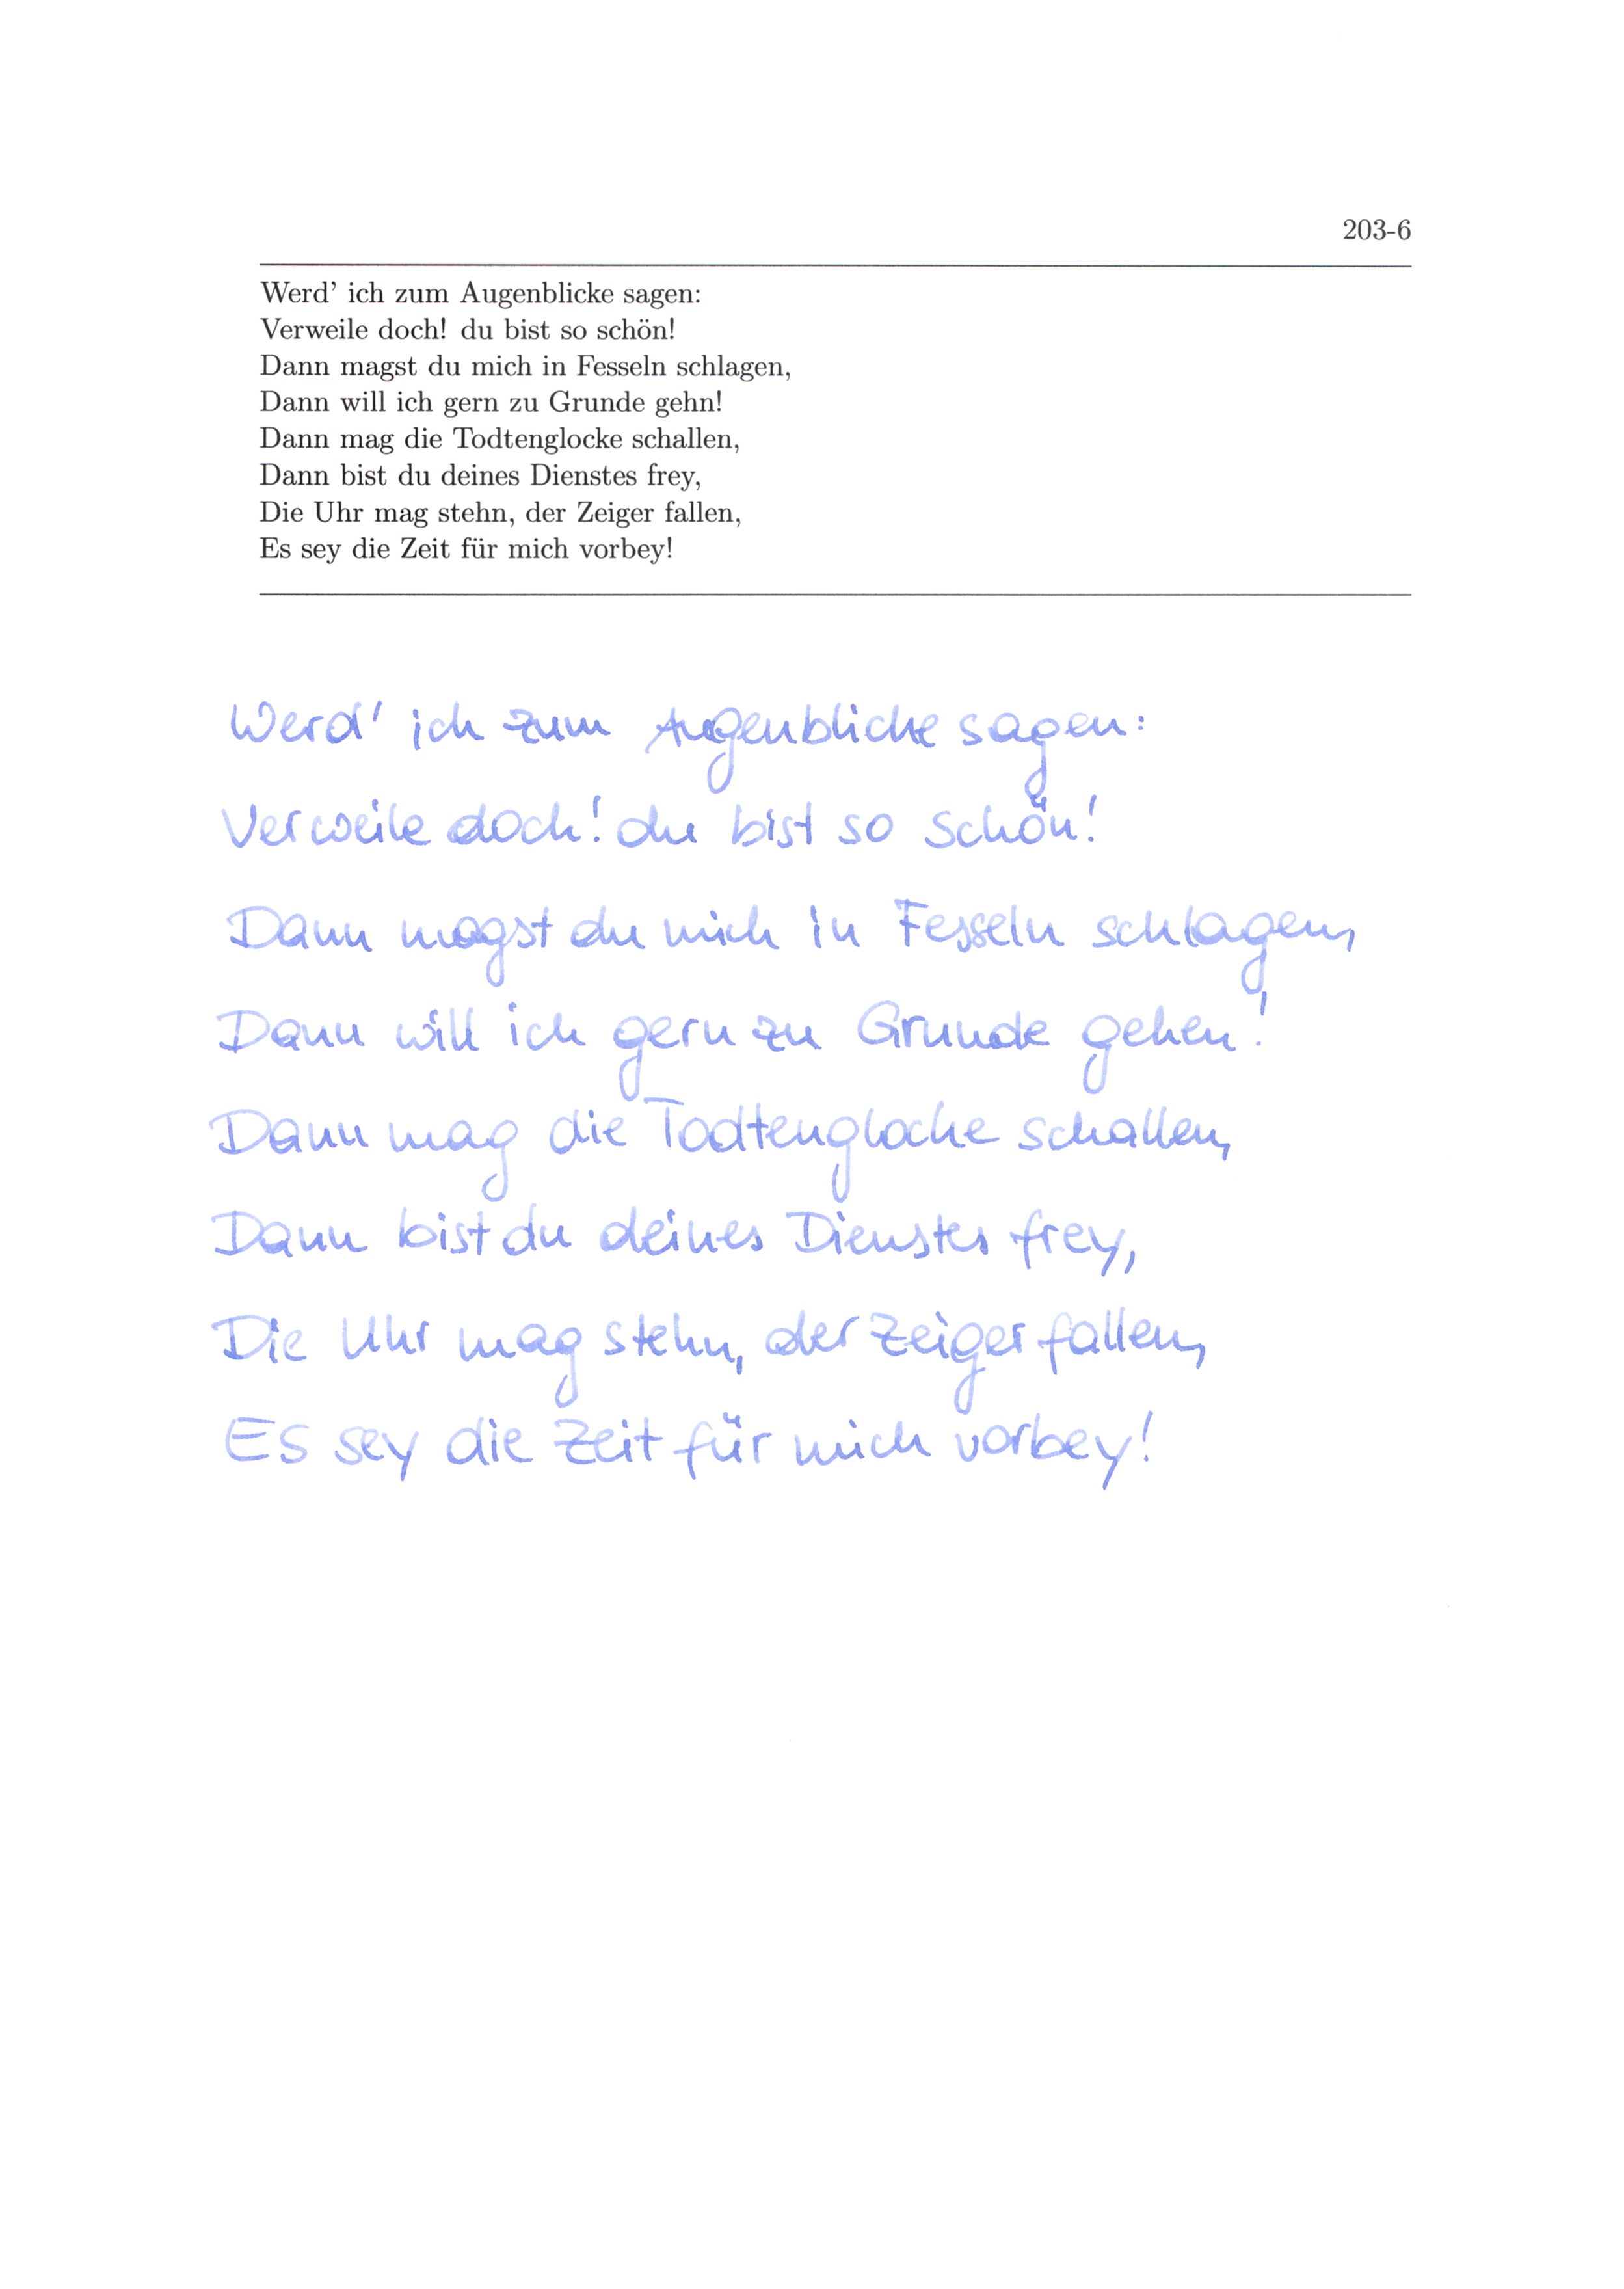 203-6
Werd' ich zum Augenblicke sagen:
Verweile doch! du bist so schön!
Dann magst du mich in Fesseln schlagen,
Dann will ich gern zu Grunde gehn!
Dann mag die Todtenglocke schallen,
Dann bist du deines Dienstes frey,
Die Uhr mag stehn, der Zeiger fallen,
Es sey die Zeit für mich vorbey!
Werd' ich zum Augenblicke sagen:
Verweile doch! du bist so schön!
Dann magst du mich in Fesseln schlagen,
Dann will ich gern zu Grunde gehen!
Dann mag die Todtenglocke schallen,
Dann bist du deines Dienstes frey,
Die Uhr mag stehn, der Zeiger fallen,
Es sey die Zeit für mich vorbey!